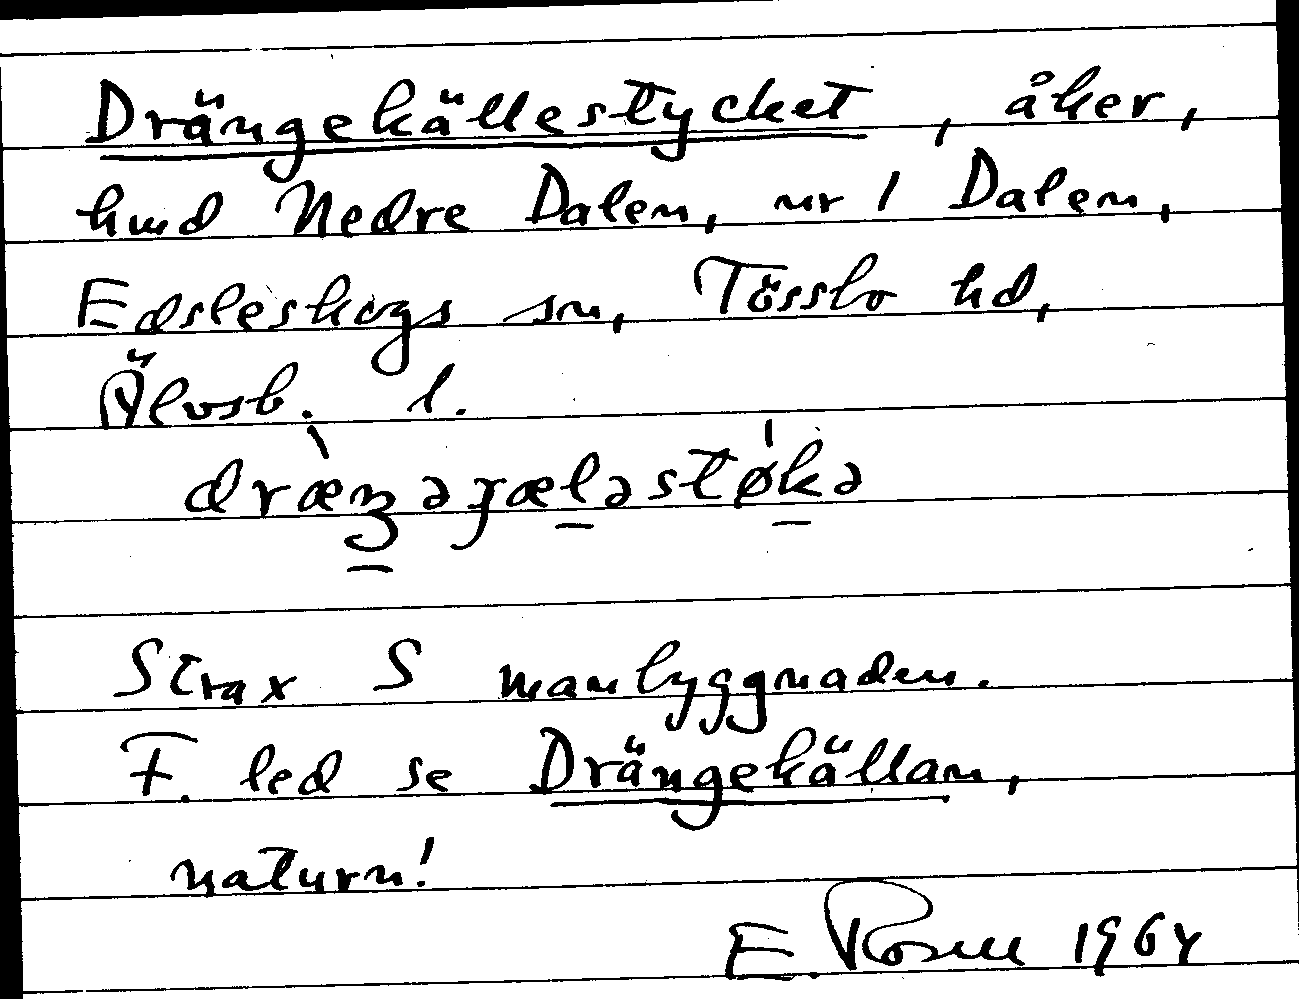 Drängekällestycket, åker,
hmd Nedre Dalen, nr 1 Dalen,
Edsleskogs sn, Tössbo hd,
Älvsb. l.
Strax S manbyggnaden.
F. led se Drängekällan,
naturn!
E. Rosell 1964